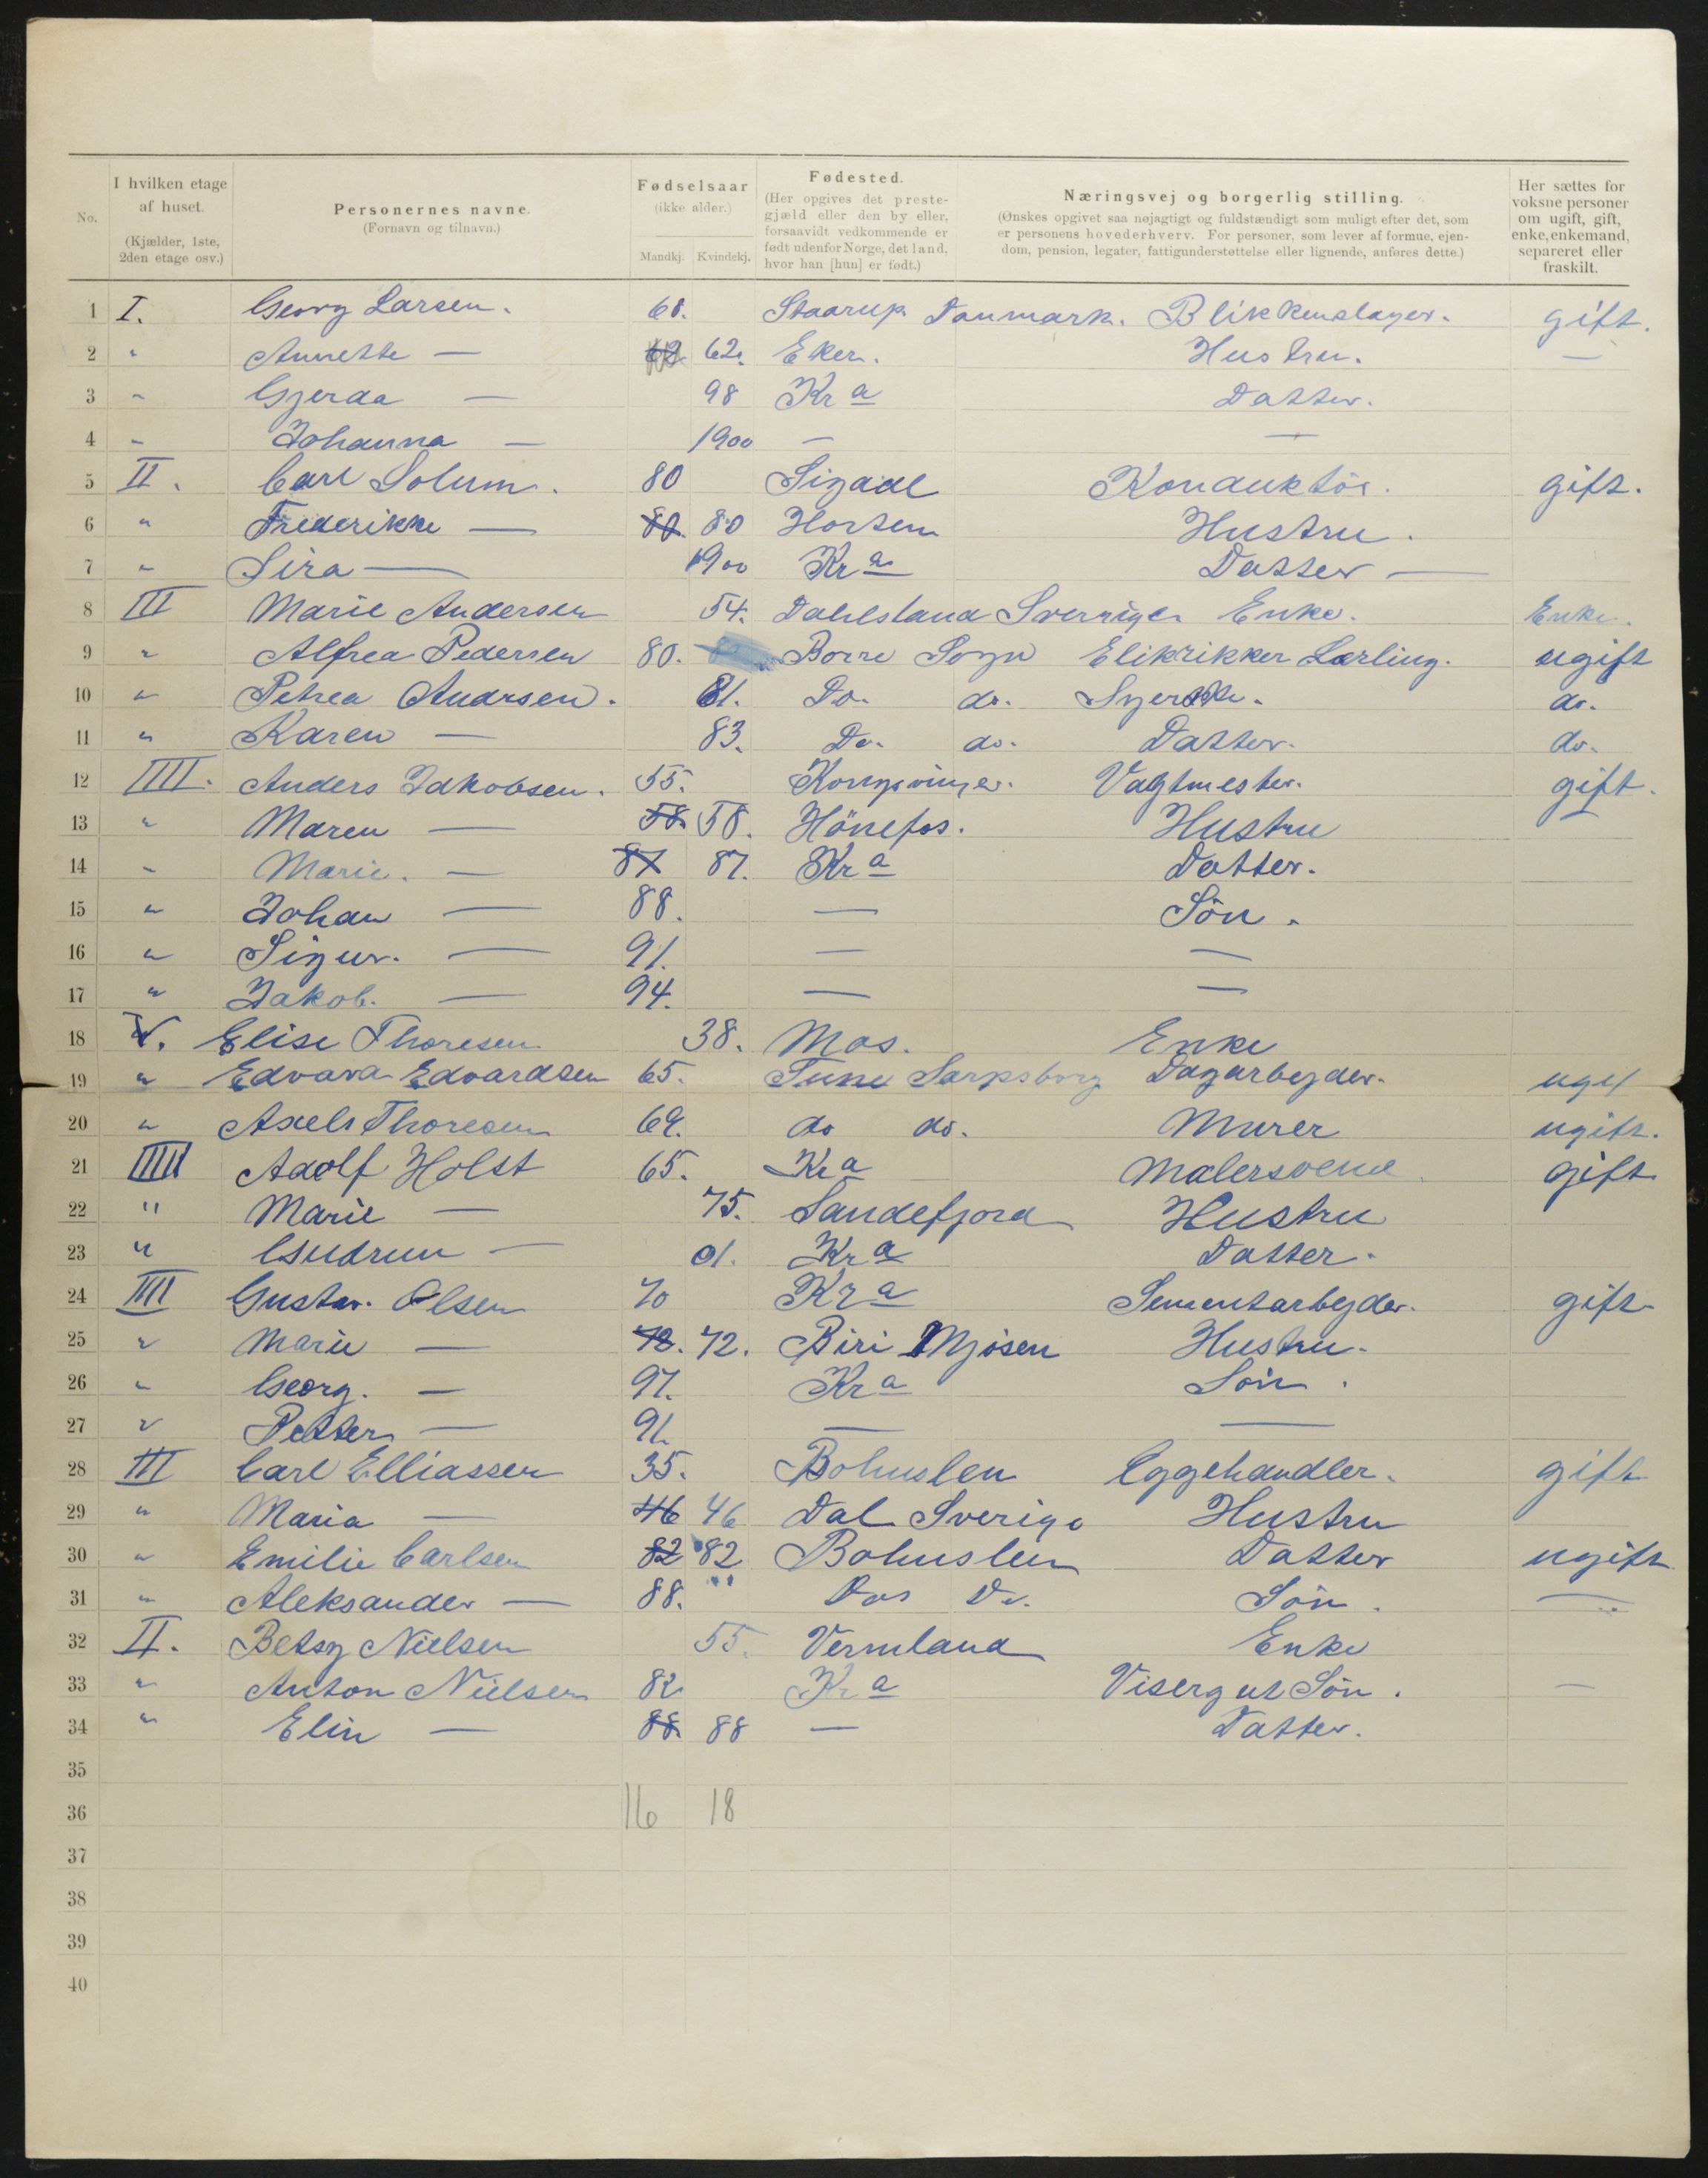 No. I hvilken etage af huset. (Kjælder, 1ste, 2den etage osv.) Personernes navne. (Fornavn og tilnavn.) Fødselsaar (ikke alder.) Mandkj. Kvindekj. Fødested. (Her opgives det prestegjæld eller den by eller, forsaavidt vedkommende er født udenfor Norge, det land, hvor han [hun] er født.) Næringsvej og borgerlig stilling. (Ønskes opgivet saa nøjagtigt og fuldstændigt som muligt efter det, som er personens hovederhverv. For personer, som lever af formue, ejendom, pension, legater, fattigunderstøttelse eller lignende, anføres dette.) Her sættes for voksne personer om ugift, gift, enke, enkemand, separeret eller fraskilt.
1 I. Georg Larsen. 60. Staarup Danmark. Blikkenslager. gift.
2 " Annette — 62. Eker. Hustru. —
3 " Gjerda — 98 Kra Datter.
4 " Johanna — 1900 — —
5 II. Carl Solum. 80 Sigdal Konduktör. gift.
6 " Frederikke — 80 80 Horten Hustru.
7 " Sira — 1900 Kra Datter —
8 III Marie Andersen 54. Dahlsland Sverriger Enke. Enke.
9 " Alfred Pedersen 80. Borre Sogn Elikrikker Lærling. ugift
10 " Petrea Andrsen. 81. Do. do. Syerske. do.
11 " Karen — 83. Do. do. Datter. do.
12 IIII. Anders Jakobsen. 55. Kongsvinger. Vagtmester. gift.
13 " Maren — 58. 58. Hönefos. Hustru
14 " Marie. — 87 87. Kra Datter.
15 " Johan — 88. — Sön.
16 " Sigur. — 91. — —
17 " Jakob. — 94. — —
18 V. Elise Thoresen 38. Mos. Enke
19 " Edvard Edvardsen 65. Tune Sarpsborg Dagarbejder. ugif
20 " Axel Thoresen 69. do do. Murer ugift.
21 IIIII Adolf Holst 65. Kra Malersvend gift
22 " Marie — 75. Sandefjord Hustru
23 " Gudrun — 01. Kra Datter.
24 IIII Gustav. Olsen 70 Kra Sementarbejder. gift
25 " Marie — 72. 72. Biri Mjösen Hustru.
26 " Georg. — 97. Kra Sön.
27 " Petter — 91. — —
28 III Carl Elliassen 35. Bohuslen Eggehandler. gift
29 " Maria — 46 46 Dal Sverige Hustru
30 " Emilie Carlsen 82 82 Bohuslen Datter ugift
31 " Aleksander — 88. " Do. Sön. —
32 II. Betsy Nielsen 55. Vermland Enke
33 " Anton Nielsen 82 Kra Visergut Sön. —
34 " Elin — 88. 88 — Datter.
35
36 16 18
37
38
39
40